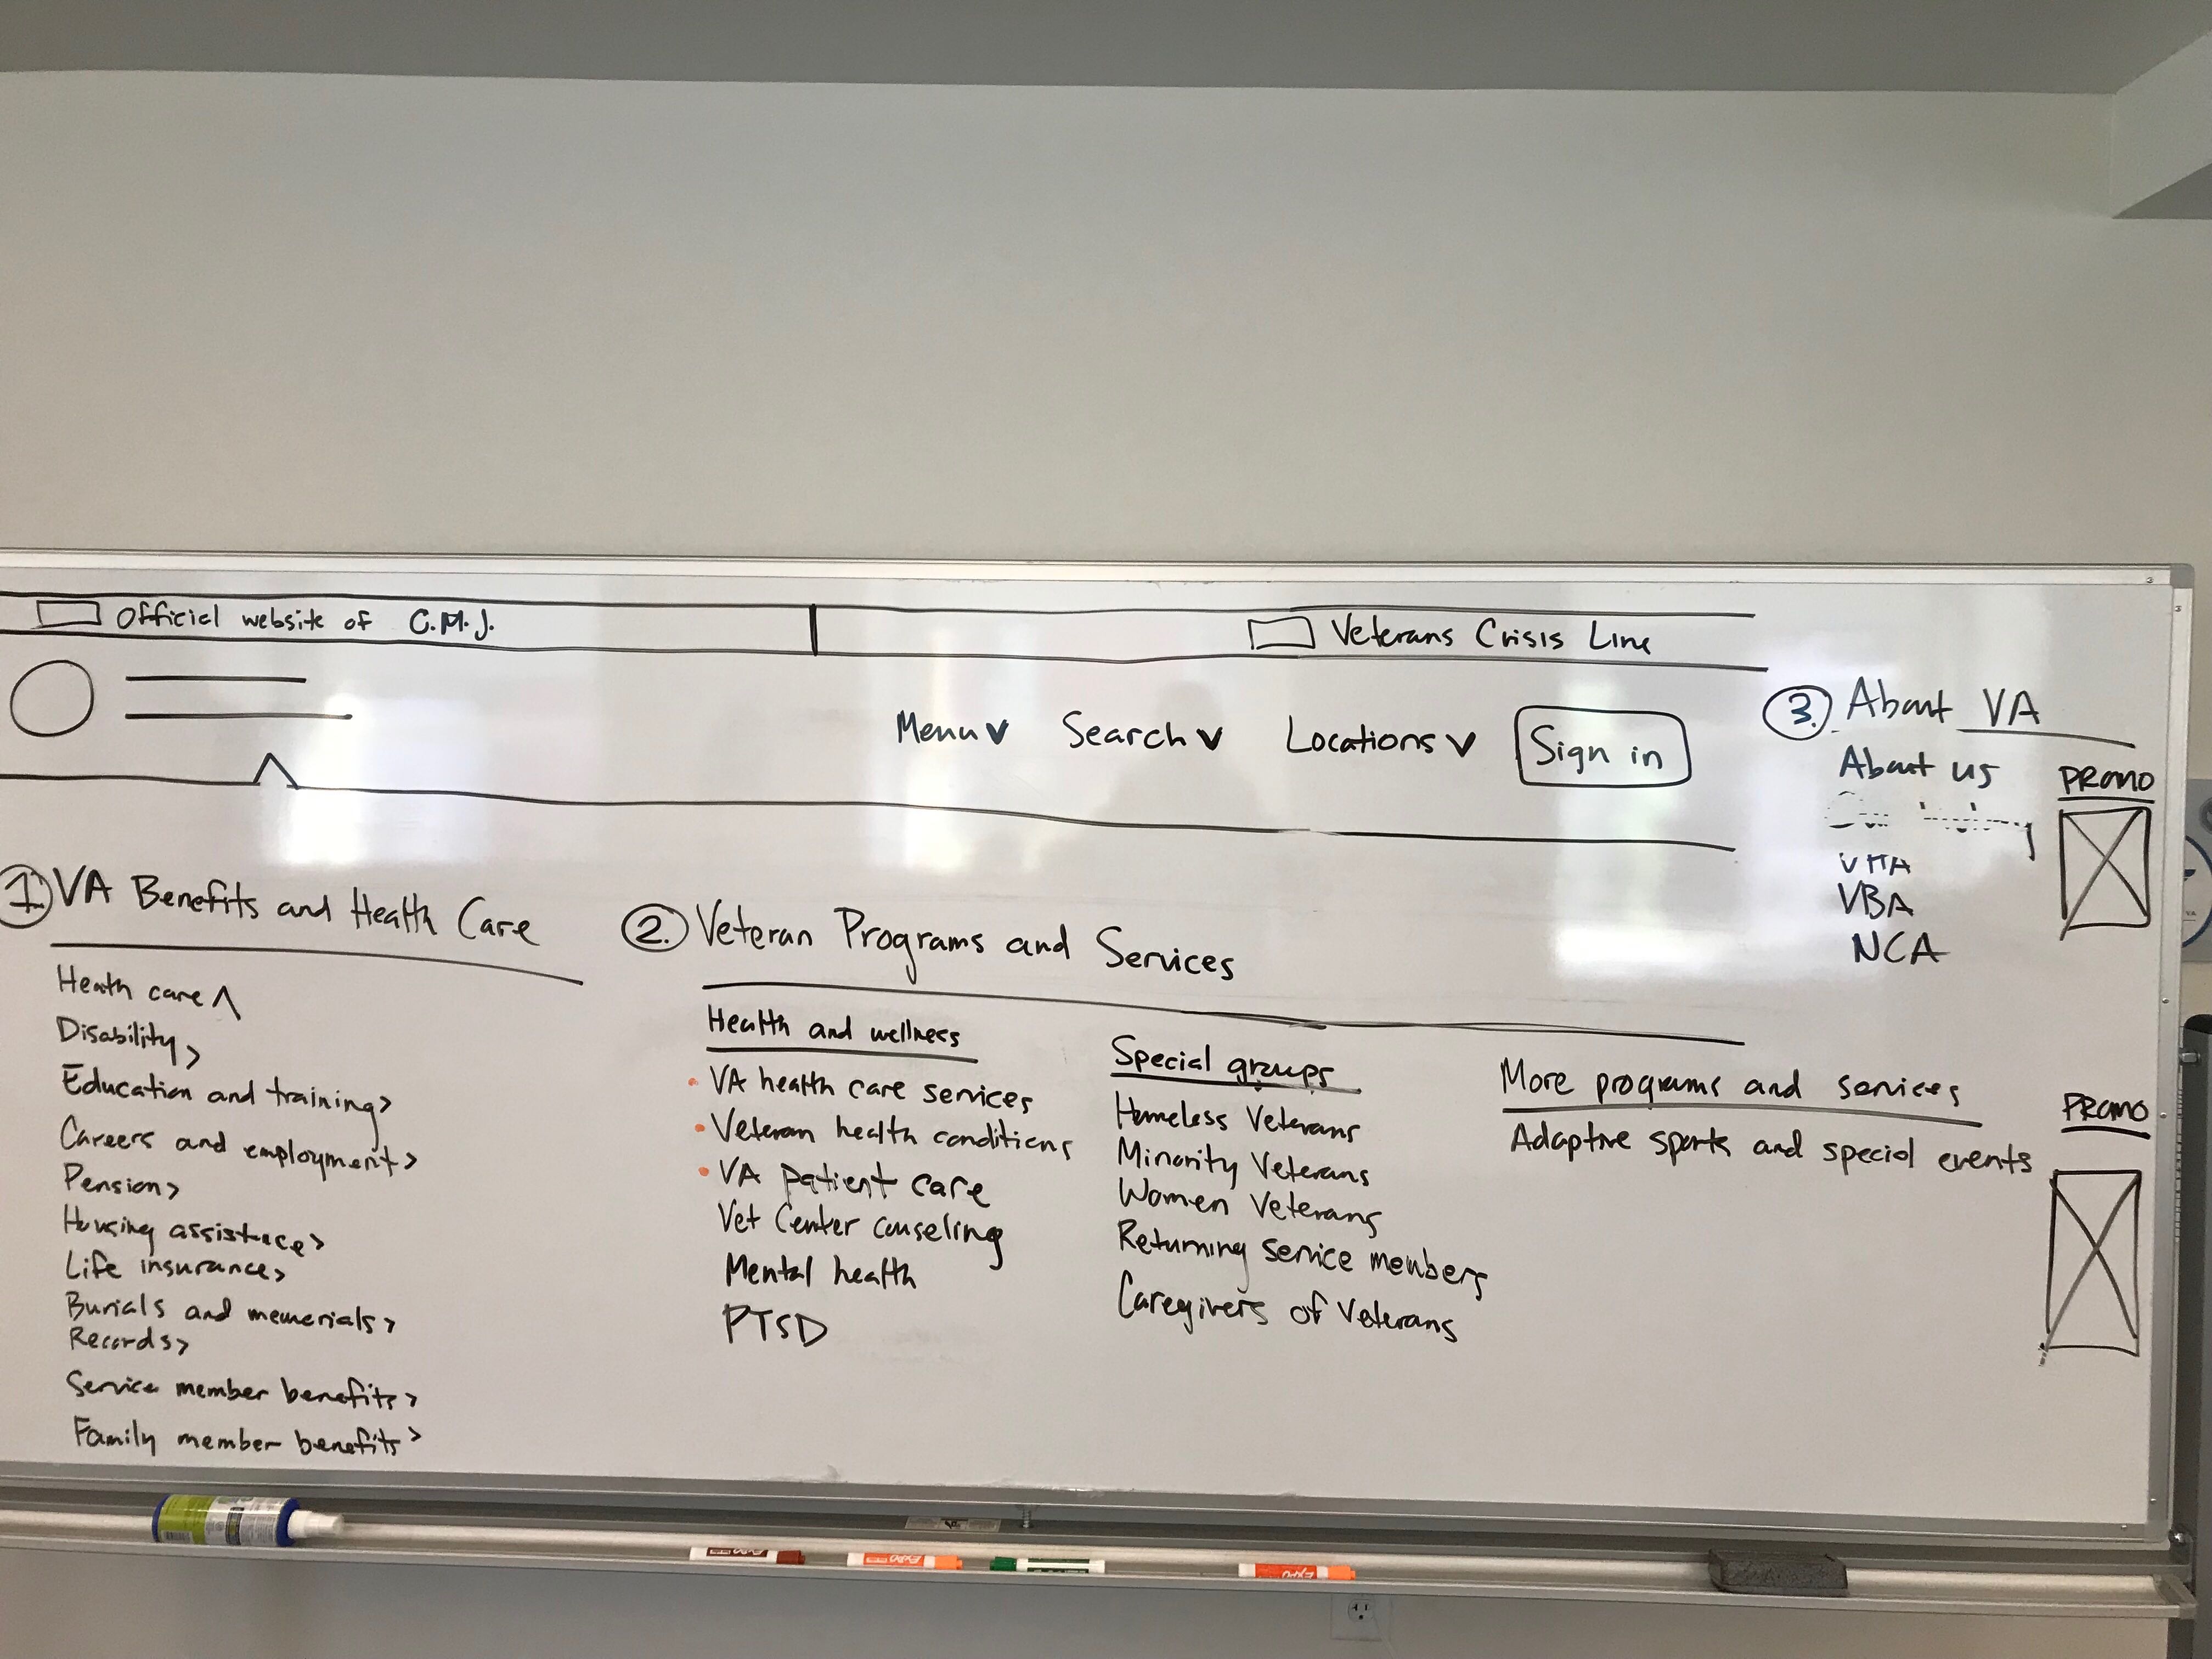 Official website of C.M.J.
Veterans Crisis Line
Menu
Search
Locations
Sign in
1 VA Benefits and Health Care
Heath care
Disability >
Education and training >
Careers and employment >
Pension >
Housing assistace >
Life insurance >
Burials and memerials >
Records >
Service member benefits >
Family member benefits >
2. Veteran Programs and Services
Health and wellness
• VA health care services
• Veteran health conditions
• VA patient care
Vet Center couseling
Mental health
PTSD
Special groups
Homeless Veterans
Minority Veterans
Women Veterans
Returning service members
Caregivers of Veterans
More programs and services
Adaptive sports and special events
3. About VA
About us
VHA
VBA
NCA
PROMO
PROMO
EXPO
EXPO
EXPO